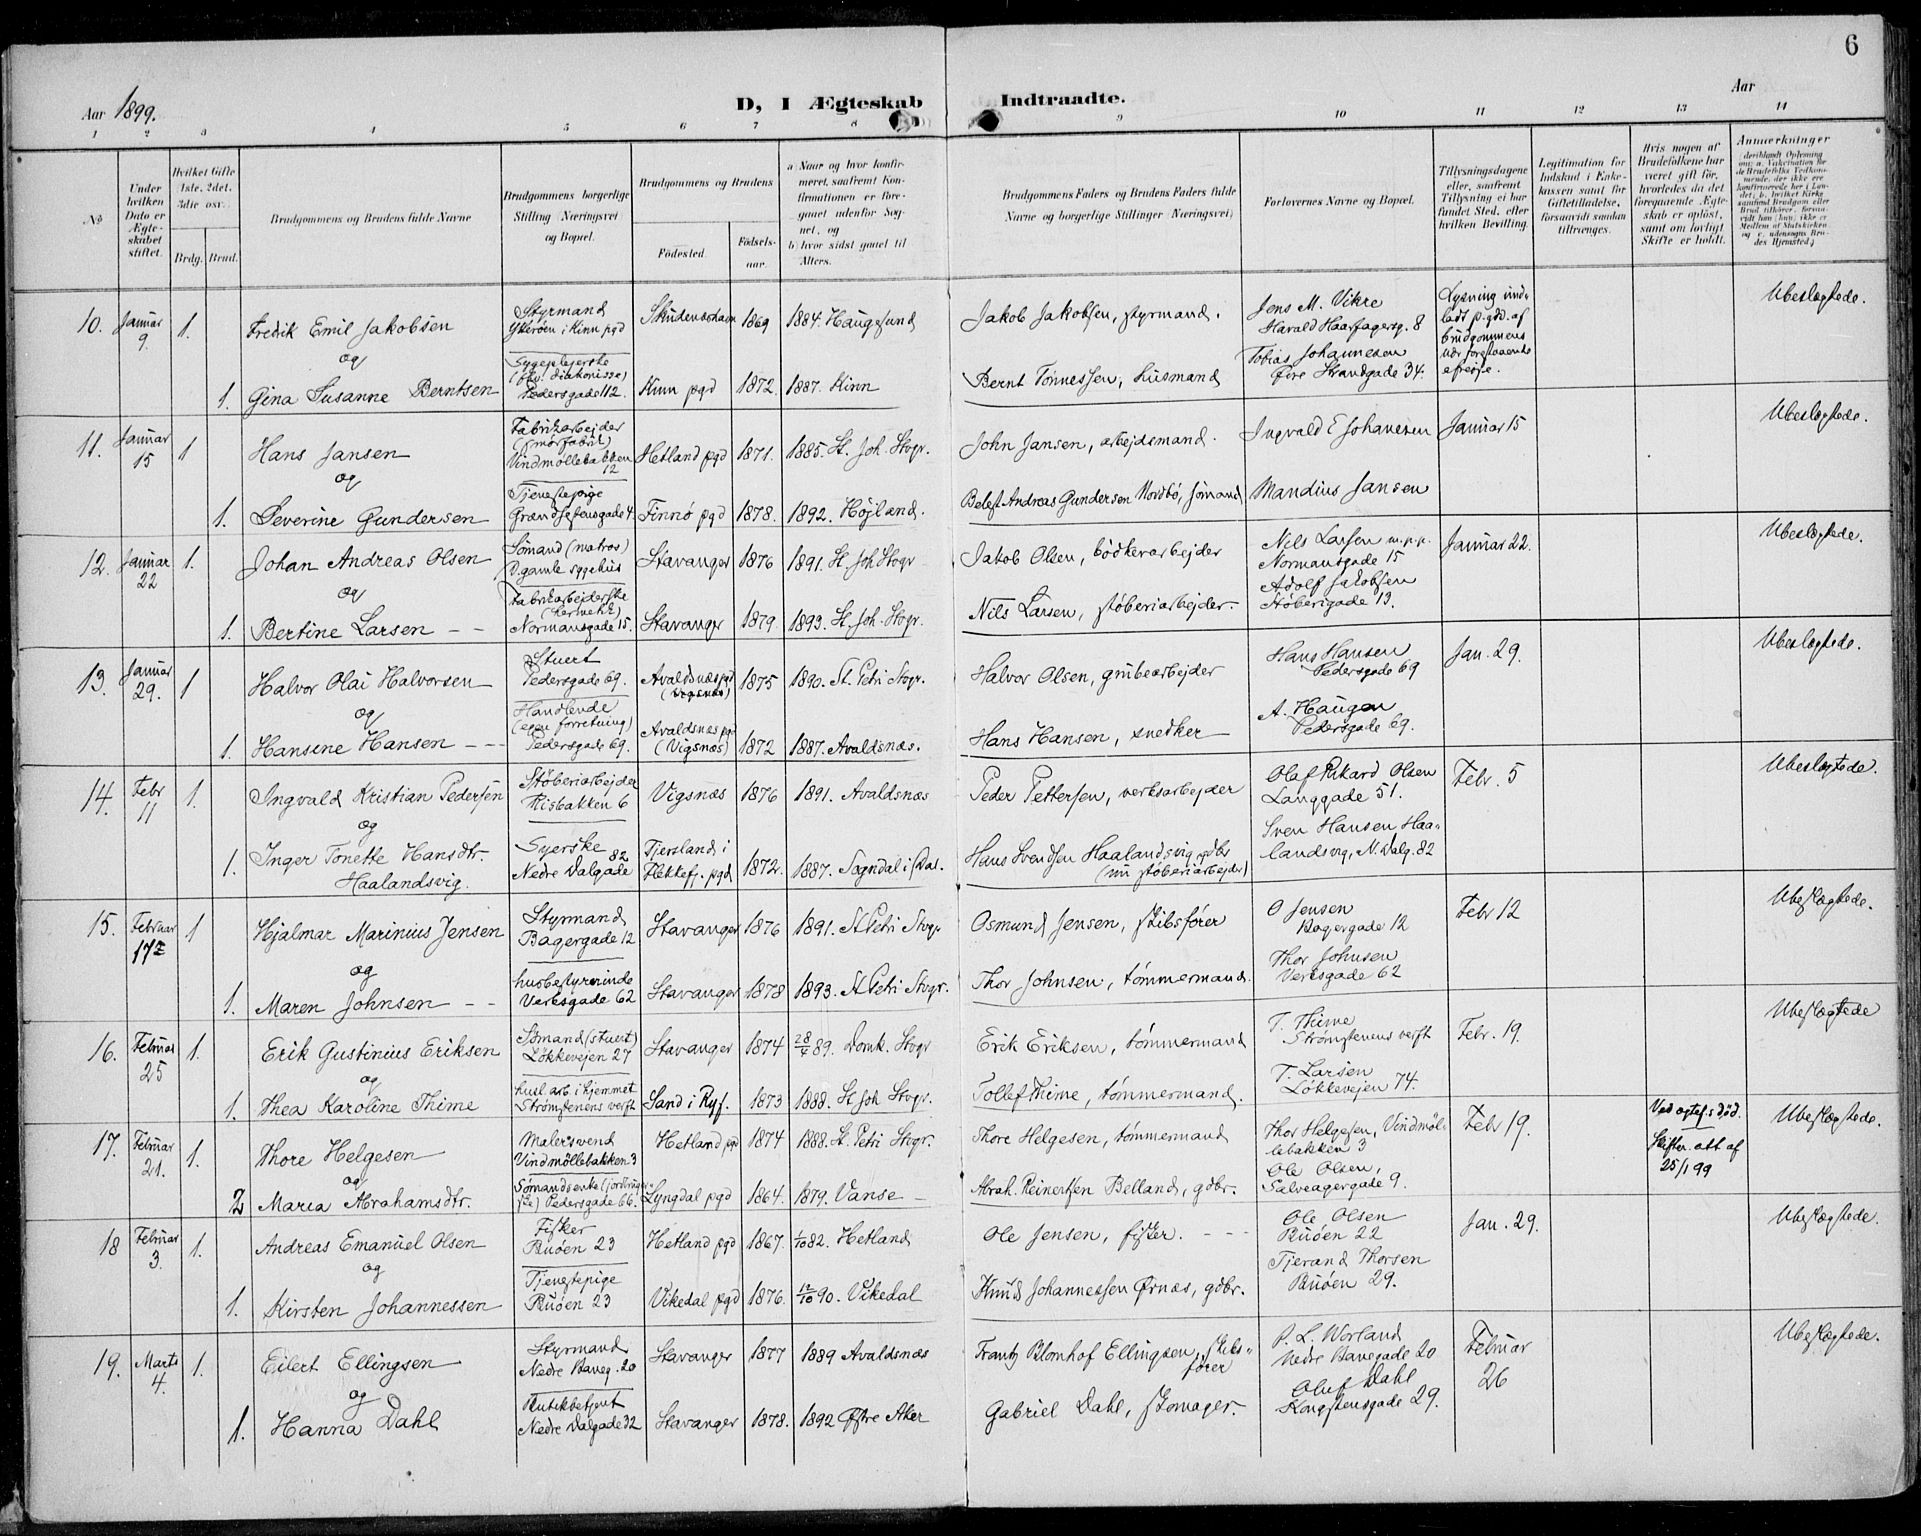 6
Aar 1899.
D, I Ægteskab Indtraadte.
Aar
1 2 3 4 5 6 7 8 9 10 11 12 13 14
No
Under hvilken Dato er Ægteskabet stiftet.
Hvilket Gifte 1ste, 2det, 3die osv.
Brdg. Brud.
Brudgommens og Brudens fulde Navne
Brudgommens borgerlige Stilling Næringsvei og Bopæl.
Brudgommens og Brudens
Födested
Födsels-aar
a) Naar og hvor konfirmeret, saafremt Konfirmationen er foregaaet udenfor Sognet, og
b) hvor sidst gaaet til Alters.
Brudgommens Faders og Brudens Faders fulde Navne og borgerlige Stillinger Næringsvei)
Forlovernes Navne og Bopæl.
Tillysningsdagene eller, saafremt Tillysning ei har fundet Sted, efter hvilken Bevilling.
Legitimation for Indskud i Enkekassen samt for Giftetilladelse, forsaavidt saadan tiltrænges.
Hvis nogen af Brudefolkene har været gift før, hvorledes da det foregaaende Ægteskab er opløst, samt om lovligt Skifte er holdt.
Anmærkninger
10. Januar 9. 1. Fredrik Emil Jakobsen Styrmand Ytterøen i Kinn pgd Skudeneshavn 1869 1884. Haugesund Jakob Jakobsen, styrmand. Jens M. Vikre Harald Haarfagersg. 8 Ubeslægtede.
og
1. Gina Susanne Berntsen Sygepleierske (fhv. diakonisse) Pedersgade 112. Kinn pgd 1872 1887. Kinn Bernt Tönnessen, husmand Tobias Johannesen Øvre Strandgade 34.
11. Januar 15 1 Hans Jansen Fabrikarbejder (smørfabrik) Vindmøllebakken 12 Hetland pgd 1871. 1885. St. Joh. Stvgr. John Jansen, arbejdsmand. Ingvald E Johanesen Januar 15 Ubeslægtede.
og
1. Severine Gundersen Tjenestepige Grændsestensgade 4. Finnø pgd 1878. 1892. Højland. Andreas Gundersen Nordbö, sömand Mandius Jansen
12. Januar 22 1. Johan Andreas Olsen Sömand (matros) D. gamle sygehus Stavanger 1876 1891. St. Joh Stvgr Jakob Olsen, bödkerarbejder Nils Larsen m.p.p. Normansgade 15 Januar 22. Ubeslægtede.
og
1. Bertine Larsen Fabrikarbejderske (hermetik) Normansgade 15. Stavanger 1879 1893. St. Joh. Stvgr. Nils Larsen, støberiarbejder. Adolf Jakobsen Støberigade 13.
13. Januar 29. 1 Halvor Olai Halvorsen Stuert Pedersgade 69. Avaldsnes pgd (Vigsnæs) 1875 1890. St. Petri Stvgr. Halvor Olsen, grubearbejder Hans Hansen Pedersgade 69 Jan. 29. Ubeslægtede.
og
1. Hansine Hansen Handlende (egen forretning) Pedersgade 69. Avaldsnæs pgd (Vigsnæs) 1872 1887. Avaldsnæs. Hans Hansen, snedker A. Haugen Pedersgade 69.
14. Febr 11 1. Ingvald Kristian Pedersen Støberiarbejder Risbakken 6 Vigsnæs 1876 1891. Avaldsnæs Peder Pettersen, verksarbejder Olaf Rikard Olsen Langgade 51. Febr. 5 Ubeslægtede.
og
1. Inger Tonette Hansdtr. Haalandsvig. Syerske Nedre Dalgade 82 Fjersland i Flekkefj. pgd 1872. 1887. Sogndal i Dal. Hans Svendsen Haalandsvig, gdbr (nu støberiarbejder) Sven Hansen Haalandsvig, N. Dalg. 82
15. Februar 17 1 Hjalmar Marinius Jensen Styrmand Bagergade 12 Stavanger 1876 1891. St Petri Stvgr Osmund Jensen, skibsfører O Jensen Bagergade 12 Febr 12 Ubeslægtede.
og
1. Maren Johnsen husbestyrerinde Verksgade 62 Stavanger 1878 1893. St Petri Stvgr. Thor Johnsen, tömmermand. Thor Johnsen Verksgade 62
16. Februar 25 1. Erik Gustinius Eriksen Sømand (stuert) Løkkevejen 27 Stavanger 1874 28/4 89. Domk. Stvgr Erik Eriksen, tömmermand T. Thime Strømstenens verft Febr. 19. Ubeslægtede
og
1. Thea Karoline Thime husl. arb. i hjemmet Strømstenens verft Sand i Ryf. 1873 1888. St Joh Stvgr. Tollef Thime, tömmermand. T. Larsen Løkkevejen 74.
17. Februar 21. 1. Thore Helgesen Malersvend Vindmøllebakken 3 Hetland pgd 1874 1888. St. Petri Stvgr. Thore Helgesen, tömmermand Thor Helgesen, Vindmøllebakken 3 Febr 19. Ved ægtef.s död. Skifter. att af 25/1 99 Ubeslægtede.
og
2 Maria Abrahamsdtr. Sömandsenke Pedersgade 66. Lyngdal pgd 1864. 1879. Vanse Abrah. Reinertsen Belland, gdbr. Ole Olsen, Salveagergade 9.
18 Februar 3. 1. Andreas Emanuel Olsen Fisker Buöen 23 Hetland pgd 1867. 1/10 82. Hetland Ole Jensen, fisker. Ole Olsen Buöen 22 Jan. 29. Ubeslægtede.
og
1. Kirsten Johannessen Tjenestepige Buöen 23 Vikedal pgd 1876. 12/10 90. Vikedal Knud Johannessen Ørnæs, gdbr. Tjerand Thorsen Buöen 29.
19. Marts 4. 1. Eilert Ellingsen Styrmand Nedre Baneg. 20 Stavanger 1877 1889 Avaldsnæs Frantz Blomhof Ellingsen, skibsfører P. L. Worland Nedre Banegade 20 Februar 26 Ubeslægtede.
og
1. Hanna Dahl Butikbetjent Nedre Dalgade 32 Stavanger 1878. 1892 Østre Aker Gabriel Dahl, skomager. Oluf Dahl Kongstensgade 29.